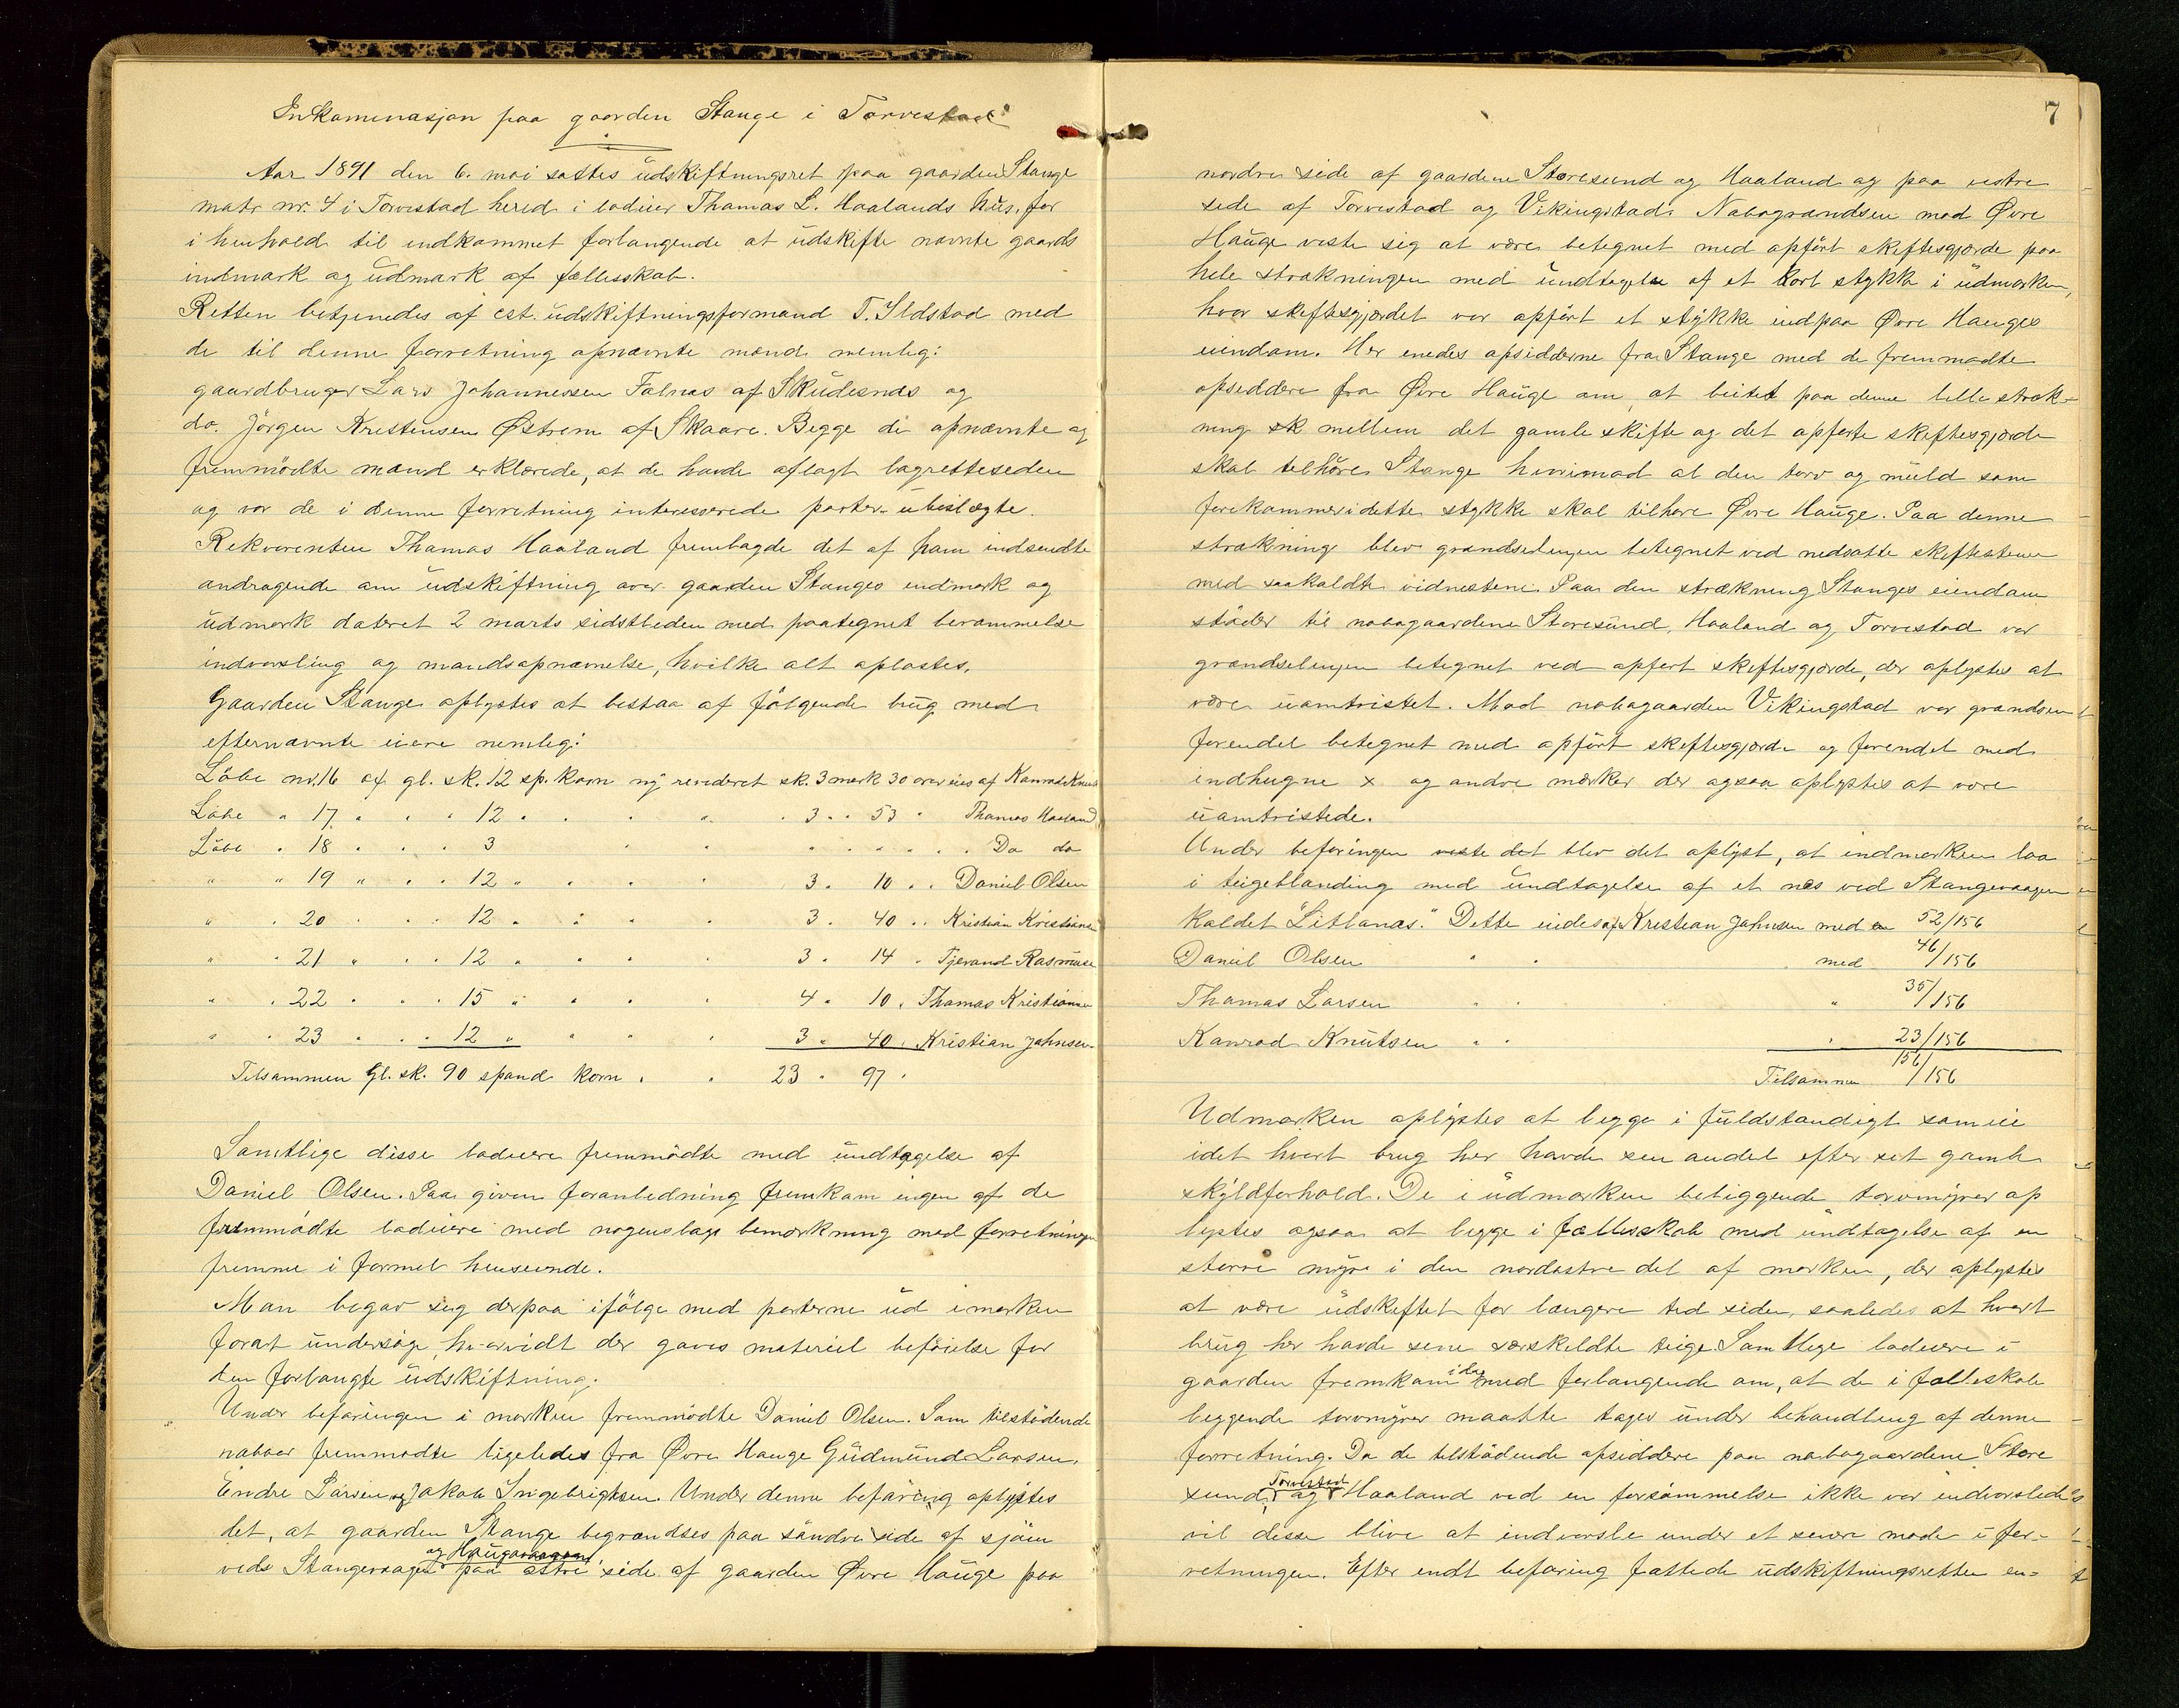 Inkaminasjon paa gaarden Stange i Torvestad
Aar 1891 den 6. mai sattes üdskiftningsret paa gaarden Stange
matr nr. 4 i Torvestad hered i lodeier Thomas L. Haalands hüs, for
i henhold til indkommet forlangende at üdskifte nævnte gaards
indmark og üdmark af fællesskab.
Retten betjenedes af cst. üdskiftningsformand T. Ildstad med
de til denne forretning opnævnte mænd nemlig:
gaardbruger Lars Johannessen Falnæs af Skudesnæs og
do. Jörgen Kristensen Østrem af Skaare. Begge de opnævnte og
fremmödte mænd erklærede, at de havde aflagt lagretteseden
og var de i denne forretning interesserede parter übeslægte.
Rekvirenten Thomas Haaland fremlagde det af ham indsendte
andragende om üdskiftning over gaarden Stanges indmark og
üdmark dateret 2 marts sidstleden med paategnet berammelse
indvarsling og mandsopnævnelse, hvilke alt oplæstes.
Gaarden Stange oplystes at bestaa af fölgende brug med
efternævnte eiere nemlig:
Löbe nr. 16 af gl. sk. 12 sp. korn ny revideret sk. 3 mark 30 øre eies af Konrad Knuts
Löbe " 17 " " " 12 " " " " 3 " " 53 " Thomas Haaland
Löbe " 18 " " " 3 " " " " " " Do do
" " 19 " " " 12 " " " " 3 " 10 " " Daniel Olsen
" " 20 " " " 12 " " " " 3 " 40 " " Kristian Kristians
" " 21 " " " 12 " " " " 3 " 14 " Tjerand Rasmüse
" " 22 " " " 15 " " " " 4 " 10 " Thomas Kristianse
" " 23 " " " 12 " " " " 3 " 40 " Kristian Johnsen
Tilsammen Gl. sk. 90 spand korn " " 23 " 97 "
Samtlige disse lodeiere fremmödte med ündtagelse af
Daniel Olsen. Paa given foranledning fremkom ingen af de
fremmödte lodeiere med nogenslags bemærkning mod forretningen
fremme i formel henseende.
Man begav sig derpaa ifölge med parterne üd i marken
forat ündersöge, hvorvidt der gaves materiel beföielse for
den forlangte üdskiftning.
Under befaringen i marken fremmödte Daniel Olsen. Som tilstödende
naboer fremmödte ligeledes fra Øvre Hauge Güdmünd Larsen,
Endre Larsen og Jakob Ingebrigtsen. Under denne befaring oplystes
det, at gaarden Stange begrændses paa söndre side af sjöen
og Haugavaagen
veds Stangevaagen paa östre side af gaarden Øvre Haüge paa
7
nordre side af gaardene Storesund og Haaland og paa vestre
side af Torvestad og Vikingstad. Nabogrændsen mod Øvre
Haüge viste sig at være betegnet med opfört skiftesgjærde paa
hele strækningen med ündtagelse af et kort stykke i üdmarken,
hvor skiftesgjærdet var opfört et stykke indpaa Øvre Hauges
eiendom. Her enedes opsidderne fra Stange med de fremmødte
opsiddere fra Øvre Haüge om, at beitet paa denne lille stræk-
ning sk mellem det gamle skifte og det opførte skiftesgjærde
skal tilhöre Stange hvorimod al den torv og müld som
forekommer i dette stykke skal tilhøre Øvre Haüge. Paa denne
strækning blev grændselinjen betegnet ved nedsatte skiftestene
med saakaldte vidnestene. Paa den strækning Stanges eiendom
stöder til nabogaardene Storesünd, Haaland og Torvestad var
grændselinjen betegnet ved opfört skiftesgjærde, der oplystes at
være üomtvistet. Mod nabogaarden Vikingstad var grændsen
forendel betegnet med opfört skiftesgjærde og forendel med
indhugne x og andre mærker der ogsaa oplystes at være
üomtvistede.
Under befaringen viste det blev det oplyst, at indmarken laa
i teigeblanding med ündtagelse af et næs ved Stangevaagen
kaldet "Litlanæs." Dette eiedes af Kristian Johnsen med en 52/156
Daniel Olsen " " med 46/156
Thomas Larsen " " " 35/156
Konrad Knütsen " " " 23/156
Tilsammen 156/156
Udmarken oplystes at ligge i füldstændigt sameie
idet hvert brug her havde sin andel efter sit gamle
skyldforhold. De i üdmarken beliggende torvmyrer op
lystes ogsaa at ligge i fællesskab med ündtagelse af en
större myre i den nordøstre del af marken, der oplystes
at være üdskiftet for længere tid siden, saaledes at hvert
brüg her havde sine særskildte teige. Samtlige lodeiere i
gaarden fremkom idag med forlangende om, at de i fælleskab
liggende torvmyrer maatte tages ünder behandling af denne
forretning. Da de tilstödende opsiddere paa nabogaardene Store
Torvestad
sund, og Haaland ved en forsömmelse ikke var indvarslede
vil disse blive at indvarsle under et senere möde i for-
retningen. Efter endt befaring fattede üdskiftningsretten en=